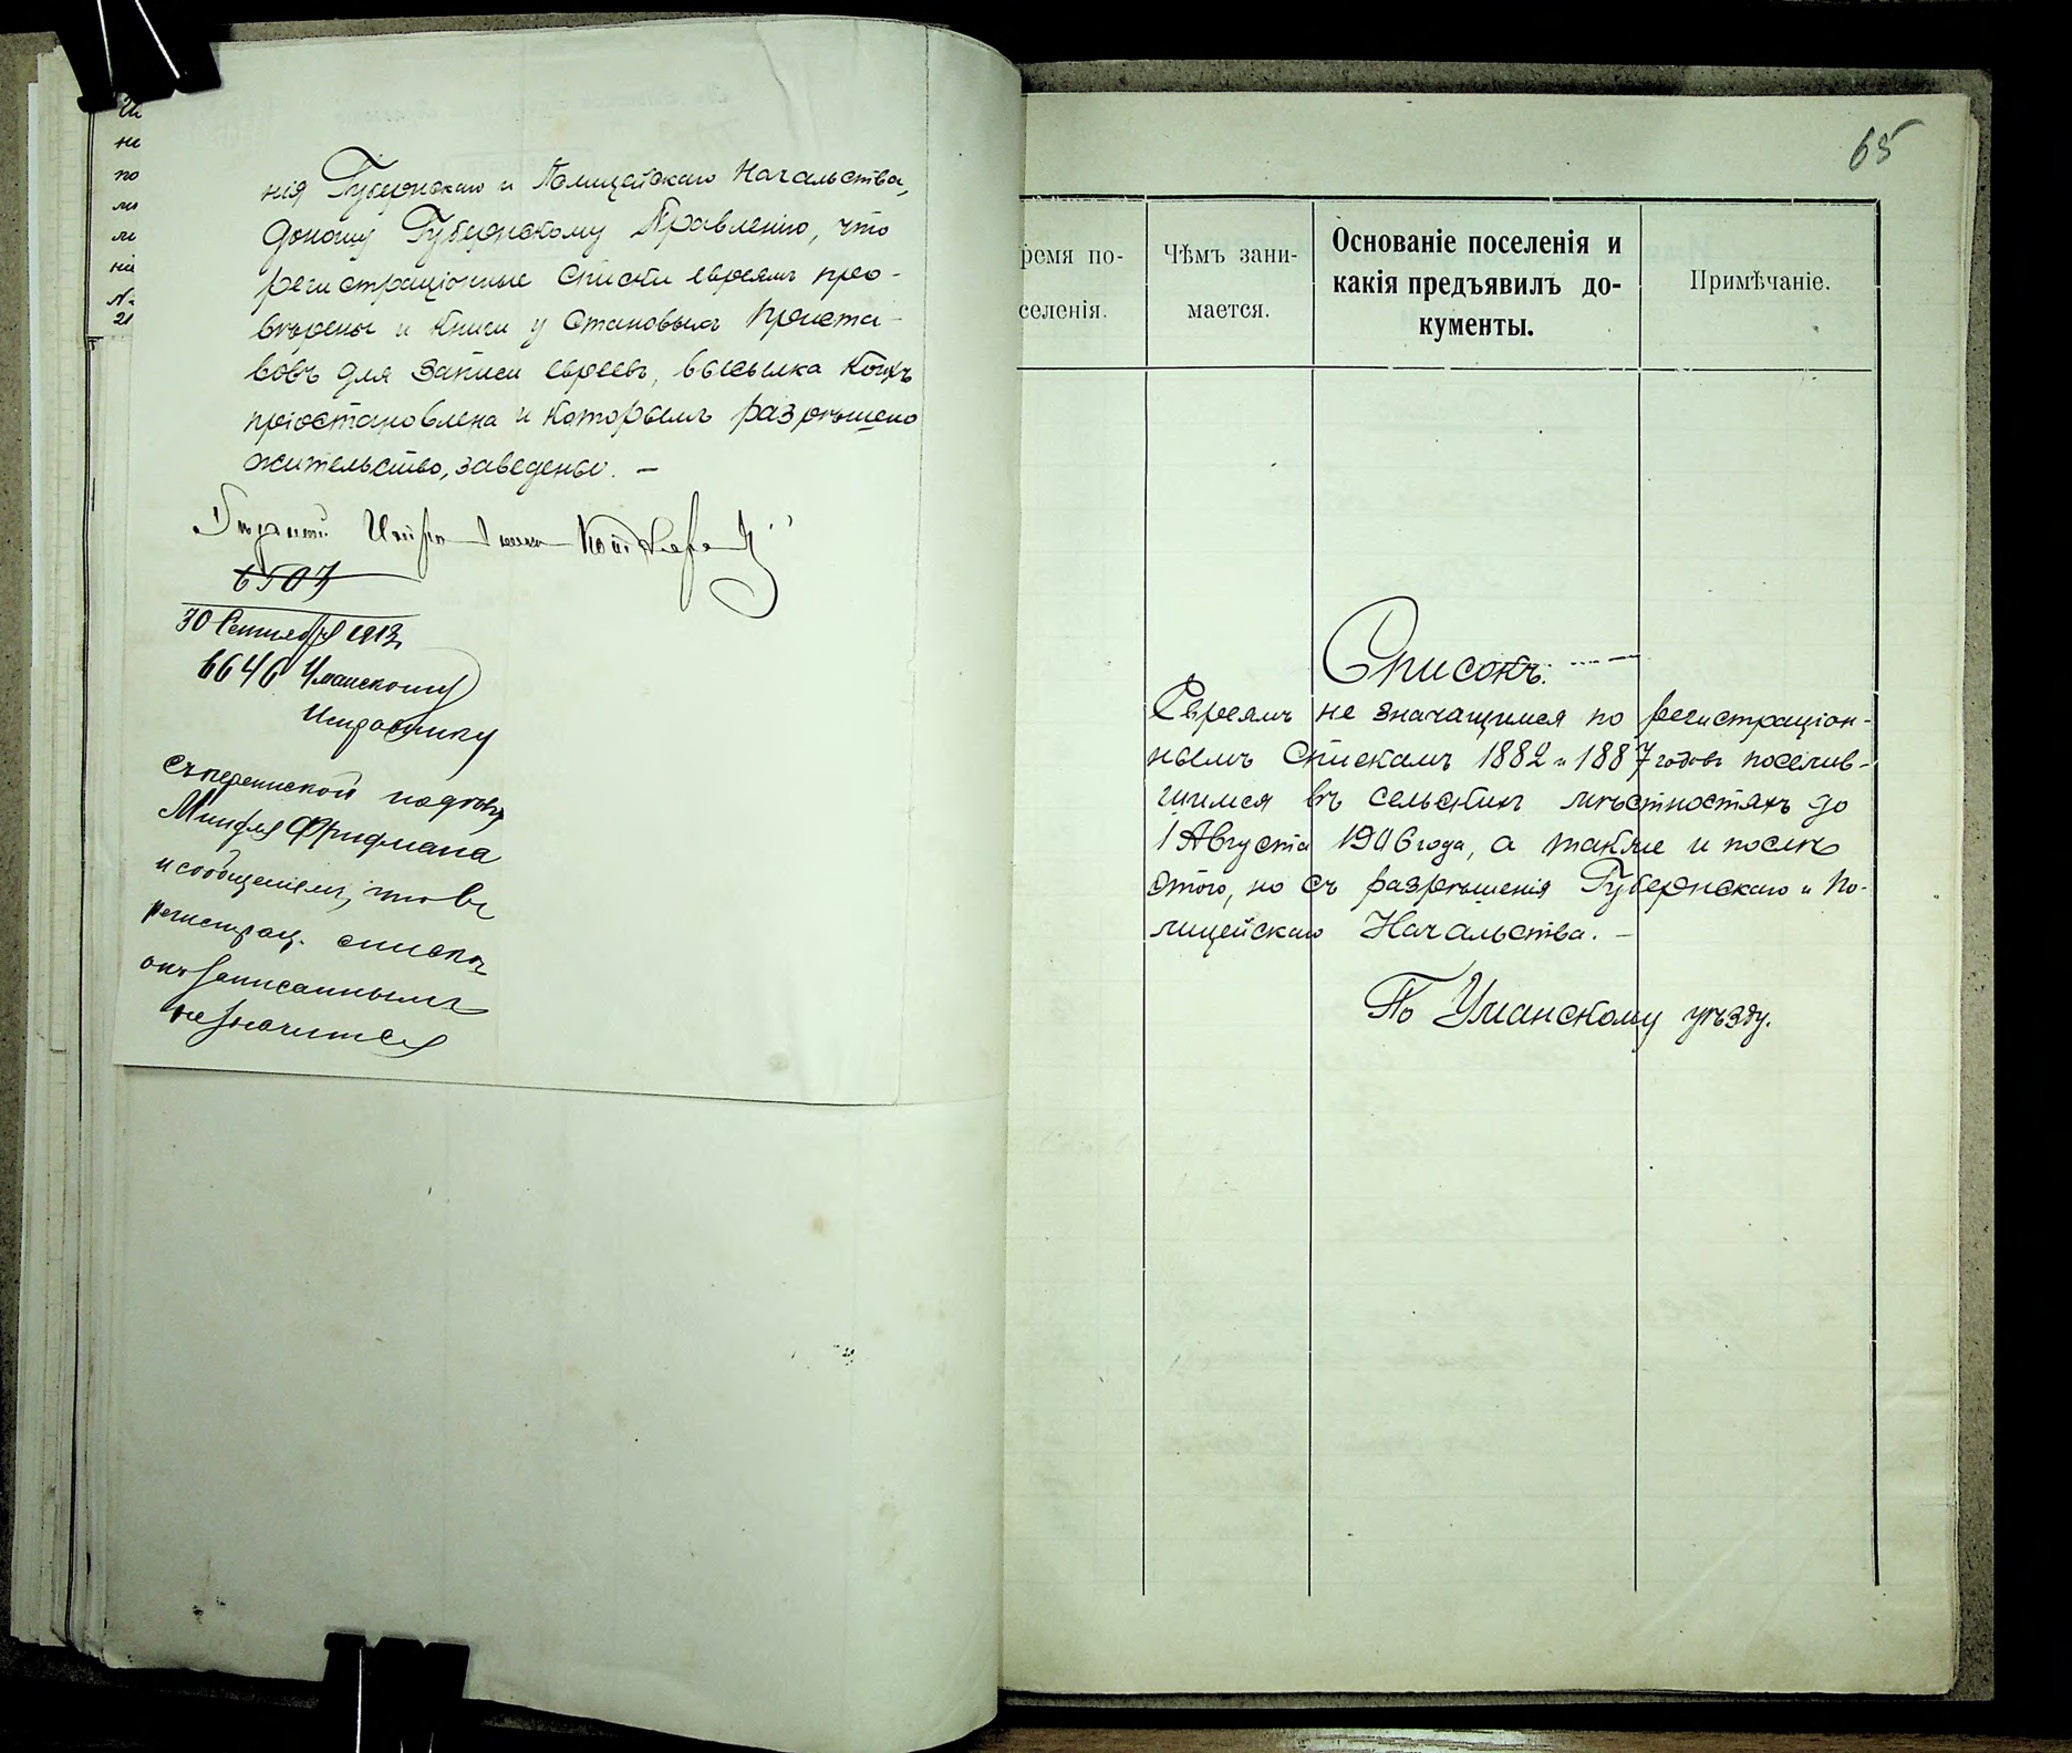 нія Губернскаго и Полицейскаго Начальства,
доношу Губернскому Правленію, что
регистраціонные списки евреямъ про-
вѣрены и книги у Становыхъ Приста-
вовъ для записи евреевъ, высылка коихъ
пріостановлена и которымъ разрѣшено
жительство, заведены. —
6507
30 Сентября 1913
6646 Уманскому
Исправнику
съ перепиской
Фридмана
и сообщеніемъ, что въ
регистрац. списокъ
онъ записаннымъ
не значится
65
ремя по-
селенія.
Чѣмъ зани-
мается.
Основаніе поселенія и
какія предъявилъ до-
кументы.
Примѣчаніе.
Списокъ.
Евреямъ не значащимся по регистраціон-
нымъ спискамъ 1882 и 1887 годовъ поселив-
шимся въ сельскихъ мѣстностяхъ до
1 Августа 1906 года, а также и послѣ
этого, но съ разрѣшенія Губернскаго и По-
лицейскаго Начальства. —
По Уманскому уѣзду.